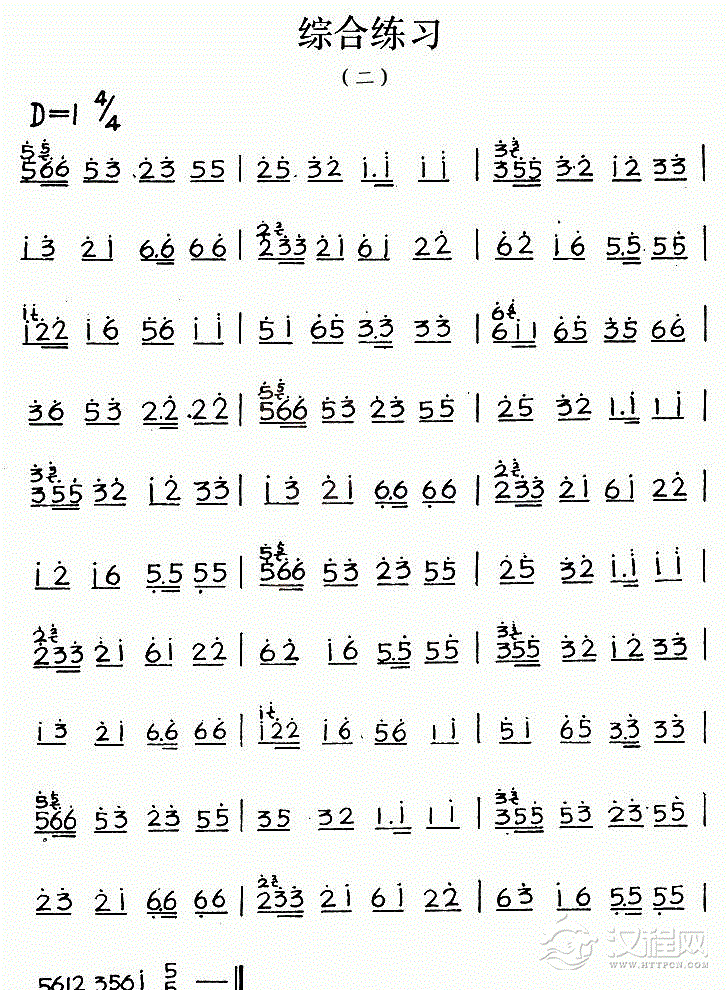 综合练习
（二）
D=1 4/4
5 5 566 53 23 55 | 25 32 1.1 11 | 3 3 355 3·2 12 33 |
13 21 6.6 66 | 2 3 233 21 61 22 | 62 16 5.5 55 |
1 1 122 16 56 11 | 51 65 3.3 33 | 6 6 611 65 35 66 |
36 53 2.2 22 | 5 5 566 53 23 55 | 25 32 1.1 11 |
3 3 355 32 12 33 | 13 21 6.6 66 | 2 3 233 21 61 22 |
12 16 5.5 55 | 5 5 566 53 23 55 | 25 32 1.1 11 |
2 2 233 21 61 22 | 62 16 5.5 55 | 3 3 355 32 12 33 |
13 21 6.6 66 | 1 1 122 16 56 11 | 51 65 3.3 33 |
5 5 566 53 23 55 | 35 32 1.1 11 | 3 3 355 53 23 55 |
23 21 6.6 66 | 2 2 233 21 61 22 | 63 16 5.5 55 |
5612 3561 5 5 — ‖
汉程网
WWW.HTTPCN.COM